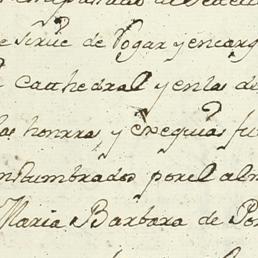 e sirue de Rogar y encarg
cathedral y en las de
las honrras y exequias fu
nstumbrados por el alm
Maria Barbara de Por